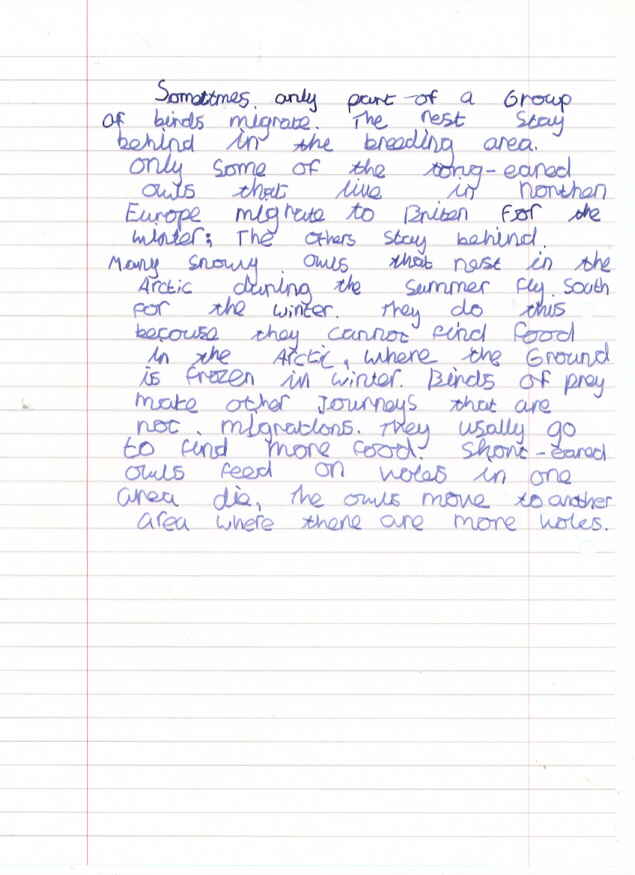 Sometimes only part of a Group
of birds migrate. The rest stay
behind in the breeding area.
only some of the long-eared
owls that live in northen
Europe migrate to Briten For the
winter; The others stay behind.
Many snowy owls that nest in the
Arctic during the summer fly South
for the winter. They do this
becouse they cannot find food
in the Arctic, where the Ground
is frozen in winter. Birds of prey
make other Journeys that are
not migrations. They usally go
to find more food. Short-eared
owls feed on voles in one
area die, the owls move to another
area where there are more voles.